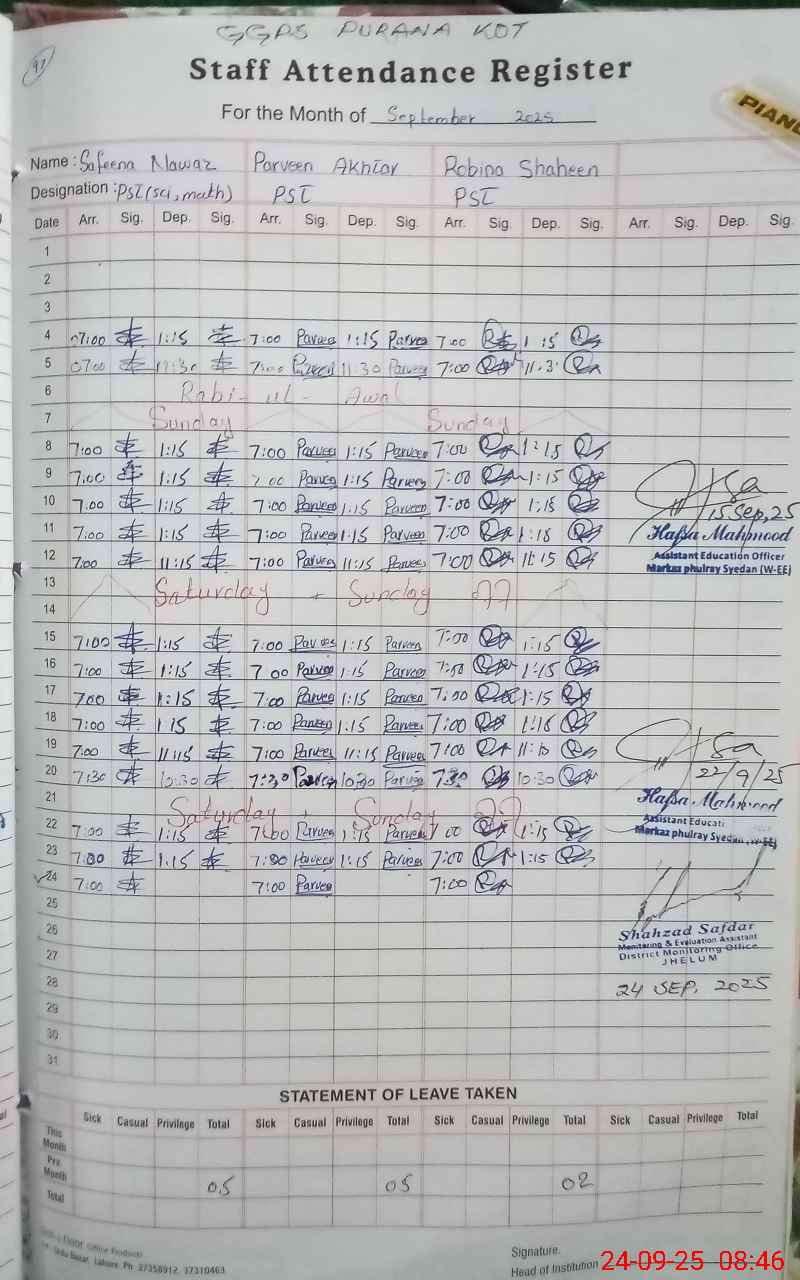 GGPS PURANA KOT
Staff Attendance Register
PIANO
For the Month of September 2025
Name : Safeena Nawaz Parveen Akhtar Robina Shaheen
Designation : PST (sci, math) PST PST
Date Arr. Sig. Dep. Sig. Arr. Sig. Dep. Sig. Arr. Sig. Dep. Sig. Arr. Sig. Dep. Sig.
1
2
3
4 07:00 1:15 7:00 Parveen 1:15 Parveen 7:00 1:15
5 0700 11:30 7:00 Parveen 11:30 Parveen 7:00 11:3
6 Rabi-ul-Awal
7 Sunday Sunday
8 7:00 1:15 7:00 Parveen 1:15 Parveen 7:00 1:15
9 7:00 1:15 7:00 Parveen 1:15 Parveen 7:00 1:15
10 7:00 1:15 7:00 Parveen 1:15 Parveen 7:00 1:15
15 Sep, 25
11 7:00 1:15 7:00 Parveen 1:15 Parveen 7:00 1:15
Hafsa Mahmood
12 7:00 11:15 7:00 Parveen 11:15 Parveen 7:00 11:15
Assistant Education Officer
Markaz phulray Syedan (W-EE)
13 Saturday + Sunday
14
15 7:00 1:15 7:00 Parveen 1:15 Parveen 7:00 1:15
16 7:00 1:15 7 00 Parveen 1:15 Parveen 7:00 1:15
17 700 1:15 7:00 Parveen 1:15 Parveen 7:00 1:15
18 7:00 1 15 7:00 Parveen 1:15 Parveen 7:00 1:15
19 7:00 11:15 7:00 Parveen 11:15 Parveen 7:00 11:10
20 7:30 10:30 7:30 Parveen 10:30 Parveen 7:30 10:30
22/9/25
21 Saturday Sunday
Hafsa Mahmood
22 7:00 1:15 7:00 Parveen 1:15 Parveen 7:00 1:15
Assistant Educati
Markaz phulray Syedan (W-EE)
23 7:00 1:15 7:00 Parveen 1:15 Parveen 7:00 1:15
24 7:00 7:00 Parveen 7:00
25
26
Shahzad Safdar
Monitoring & Evaluation Assistant
27
District Monitoring Office
JHELUM
28
24 SEP, 2025
29
30
31
STATEMENT OF LEAVE TAKEN
Sick Casual Privilege Total Sick Casual Privilege Total Sick Casual Privilege Total Sick Casual Privilege Total
This Month
Pre. Month
Total 05 05 02
Urdu Bazar, Lahore. Ph: 37358912, 37310463
Signature.
Head of Institution
24-09-25 08:46